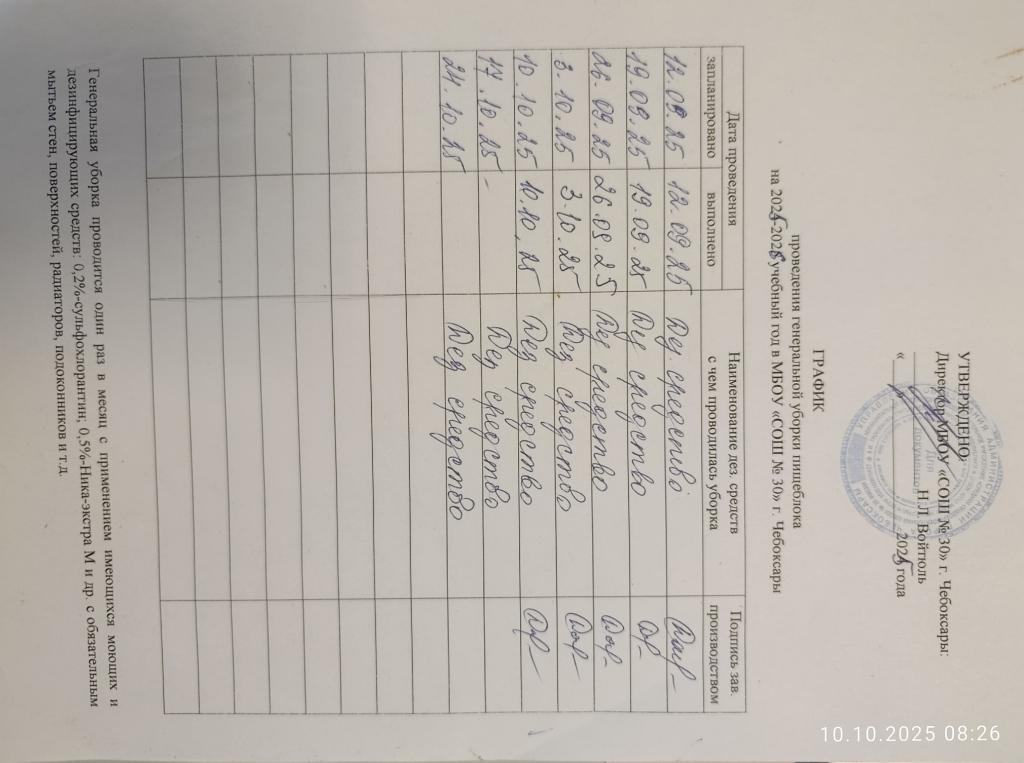 УТВЕРЖДЕНО
Директор МБОУ «СОШ № 30» г. Чебоксары:
Н.Л. Войтюль
« 2025 года
ГРАФИК
проведения генеральной уборки пищеблока
на 2025-2026 учебный год в МБОУ «СОШ № 30» г. Чебоксары
Дата проведения Наименование дез. средств с чем проводилась уборка Подпись зав. производством
запланировано выполнено
12.09.25 12.09.25 Дез. средство
19.09.25 19.09.25 Дез средство
26.09.25 26.09.25 Дез средство
3.10.25 3.10.25 Дез средство
10.10.25 10.10.25 Дез средство
17.10.25 - Дез средство
24.10.25 Дез средство
Генеральная уборка проводится один раз в месяц с применением имеющихся моющих и
дезинфицирующих средств: 0,2%-сульфохлорантин; 0,5%-Ника-экстра М и др. с обязательным
мытьем стен, поверхностей, радиаторов, подоконников и т.д.
10.10.2025 08:26